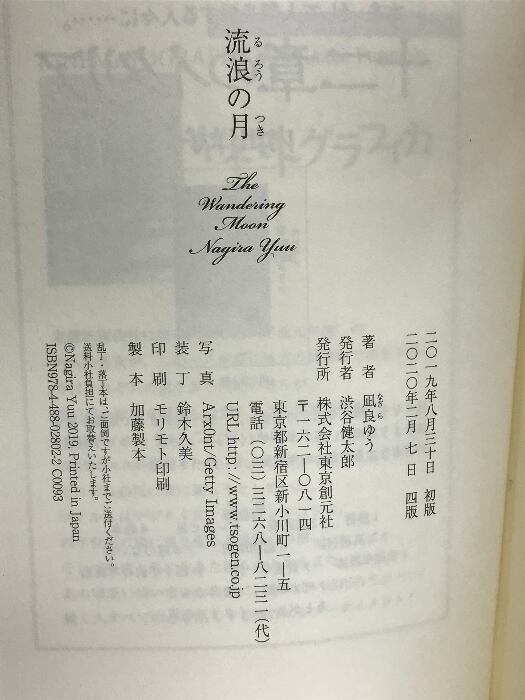 流浪の月
るろう
つき
The
Wandering
Moon
Nagira Yuu
二〇一九年八月三十日 初版
二〇二〇年二月 七 日 四版
著 者 凪良ゆう
なぎら
発行者 渋谷健太郎
発行所 株式会社東京創元社
〒一六二―〇八一四
東京都新宿区新小川町一―五
電話(〇三)三二六八―八二三一(代)
URL http://www.tsogen.co.jp
写 真 Arx0nt/Getty Images
装 丁 鈴木久美
印 刷 モリモト印刷
製 本 加藤製本
乱丁・落丁本は、ご面倒ですが小社までご送付ください。
送料小社負担にてお取替えいたします。
©Nagira Yuu 2019 Printed in Japan
ISBN978-4-488-02802-2 C0093